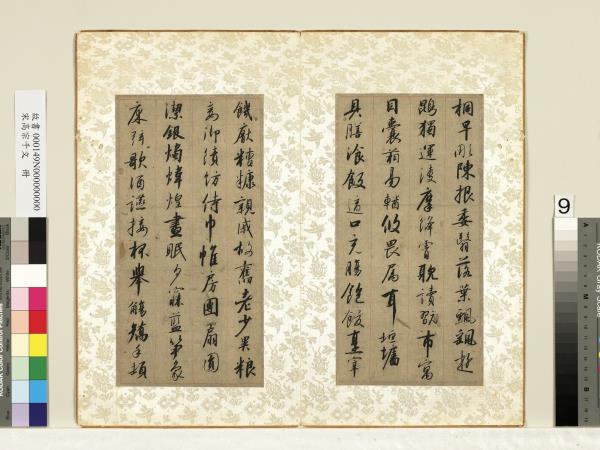 桐早彫陳根委翳落葉飄颻遊
鵾獨運凌摩絳霄耽讀翫市寓
目囊箱易輶攸畏屬耳垣牆
具膳飡飯適口充腸飽飫烹宰
饑厭糟糠親戚故舊老少異粮
妾御績紡侍巾帷房團扇圓
潔銀燭煒煌晝眠夕寐藍笋象
床弦歌酒讌接杯舉觴矯手頓
故書000149N000000000
宋高宗千文 冊
9